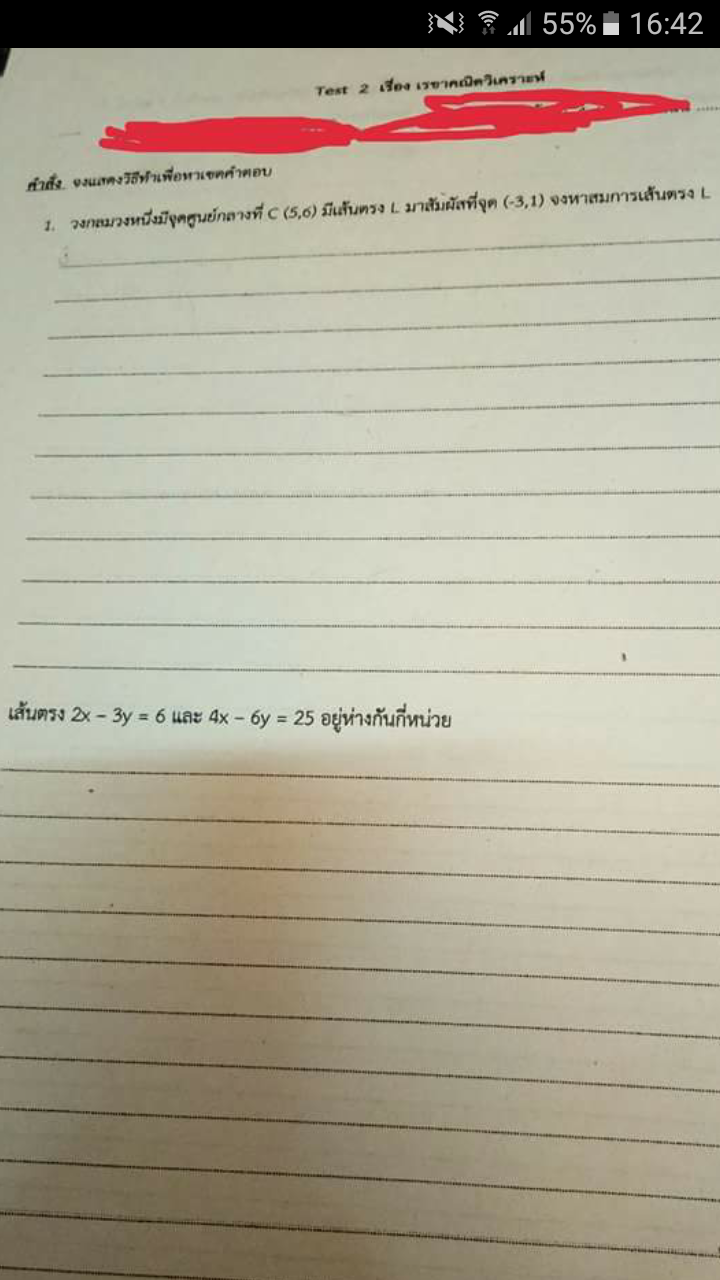 55% 16:42
Test 2 เรื่อง เรขาคณิตวิเคราะห์
คำสั่ง จงแสดงวิธีทำเพื่อหาเซตคำตอบ
1. วงกลมวงหนึ่งมีจุดศูนย์กลางที่ C (5,6) มีเส้นตรง L มาสัมผัสที่จุด (-3,1) จงหาสมการเส้นตรง L
เส้นตรง 2x – 3y = 6 และ 4x – 6y = 25 อยู่ห่างกันกี่หน่วย